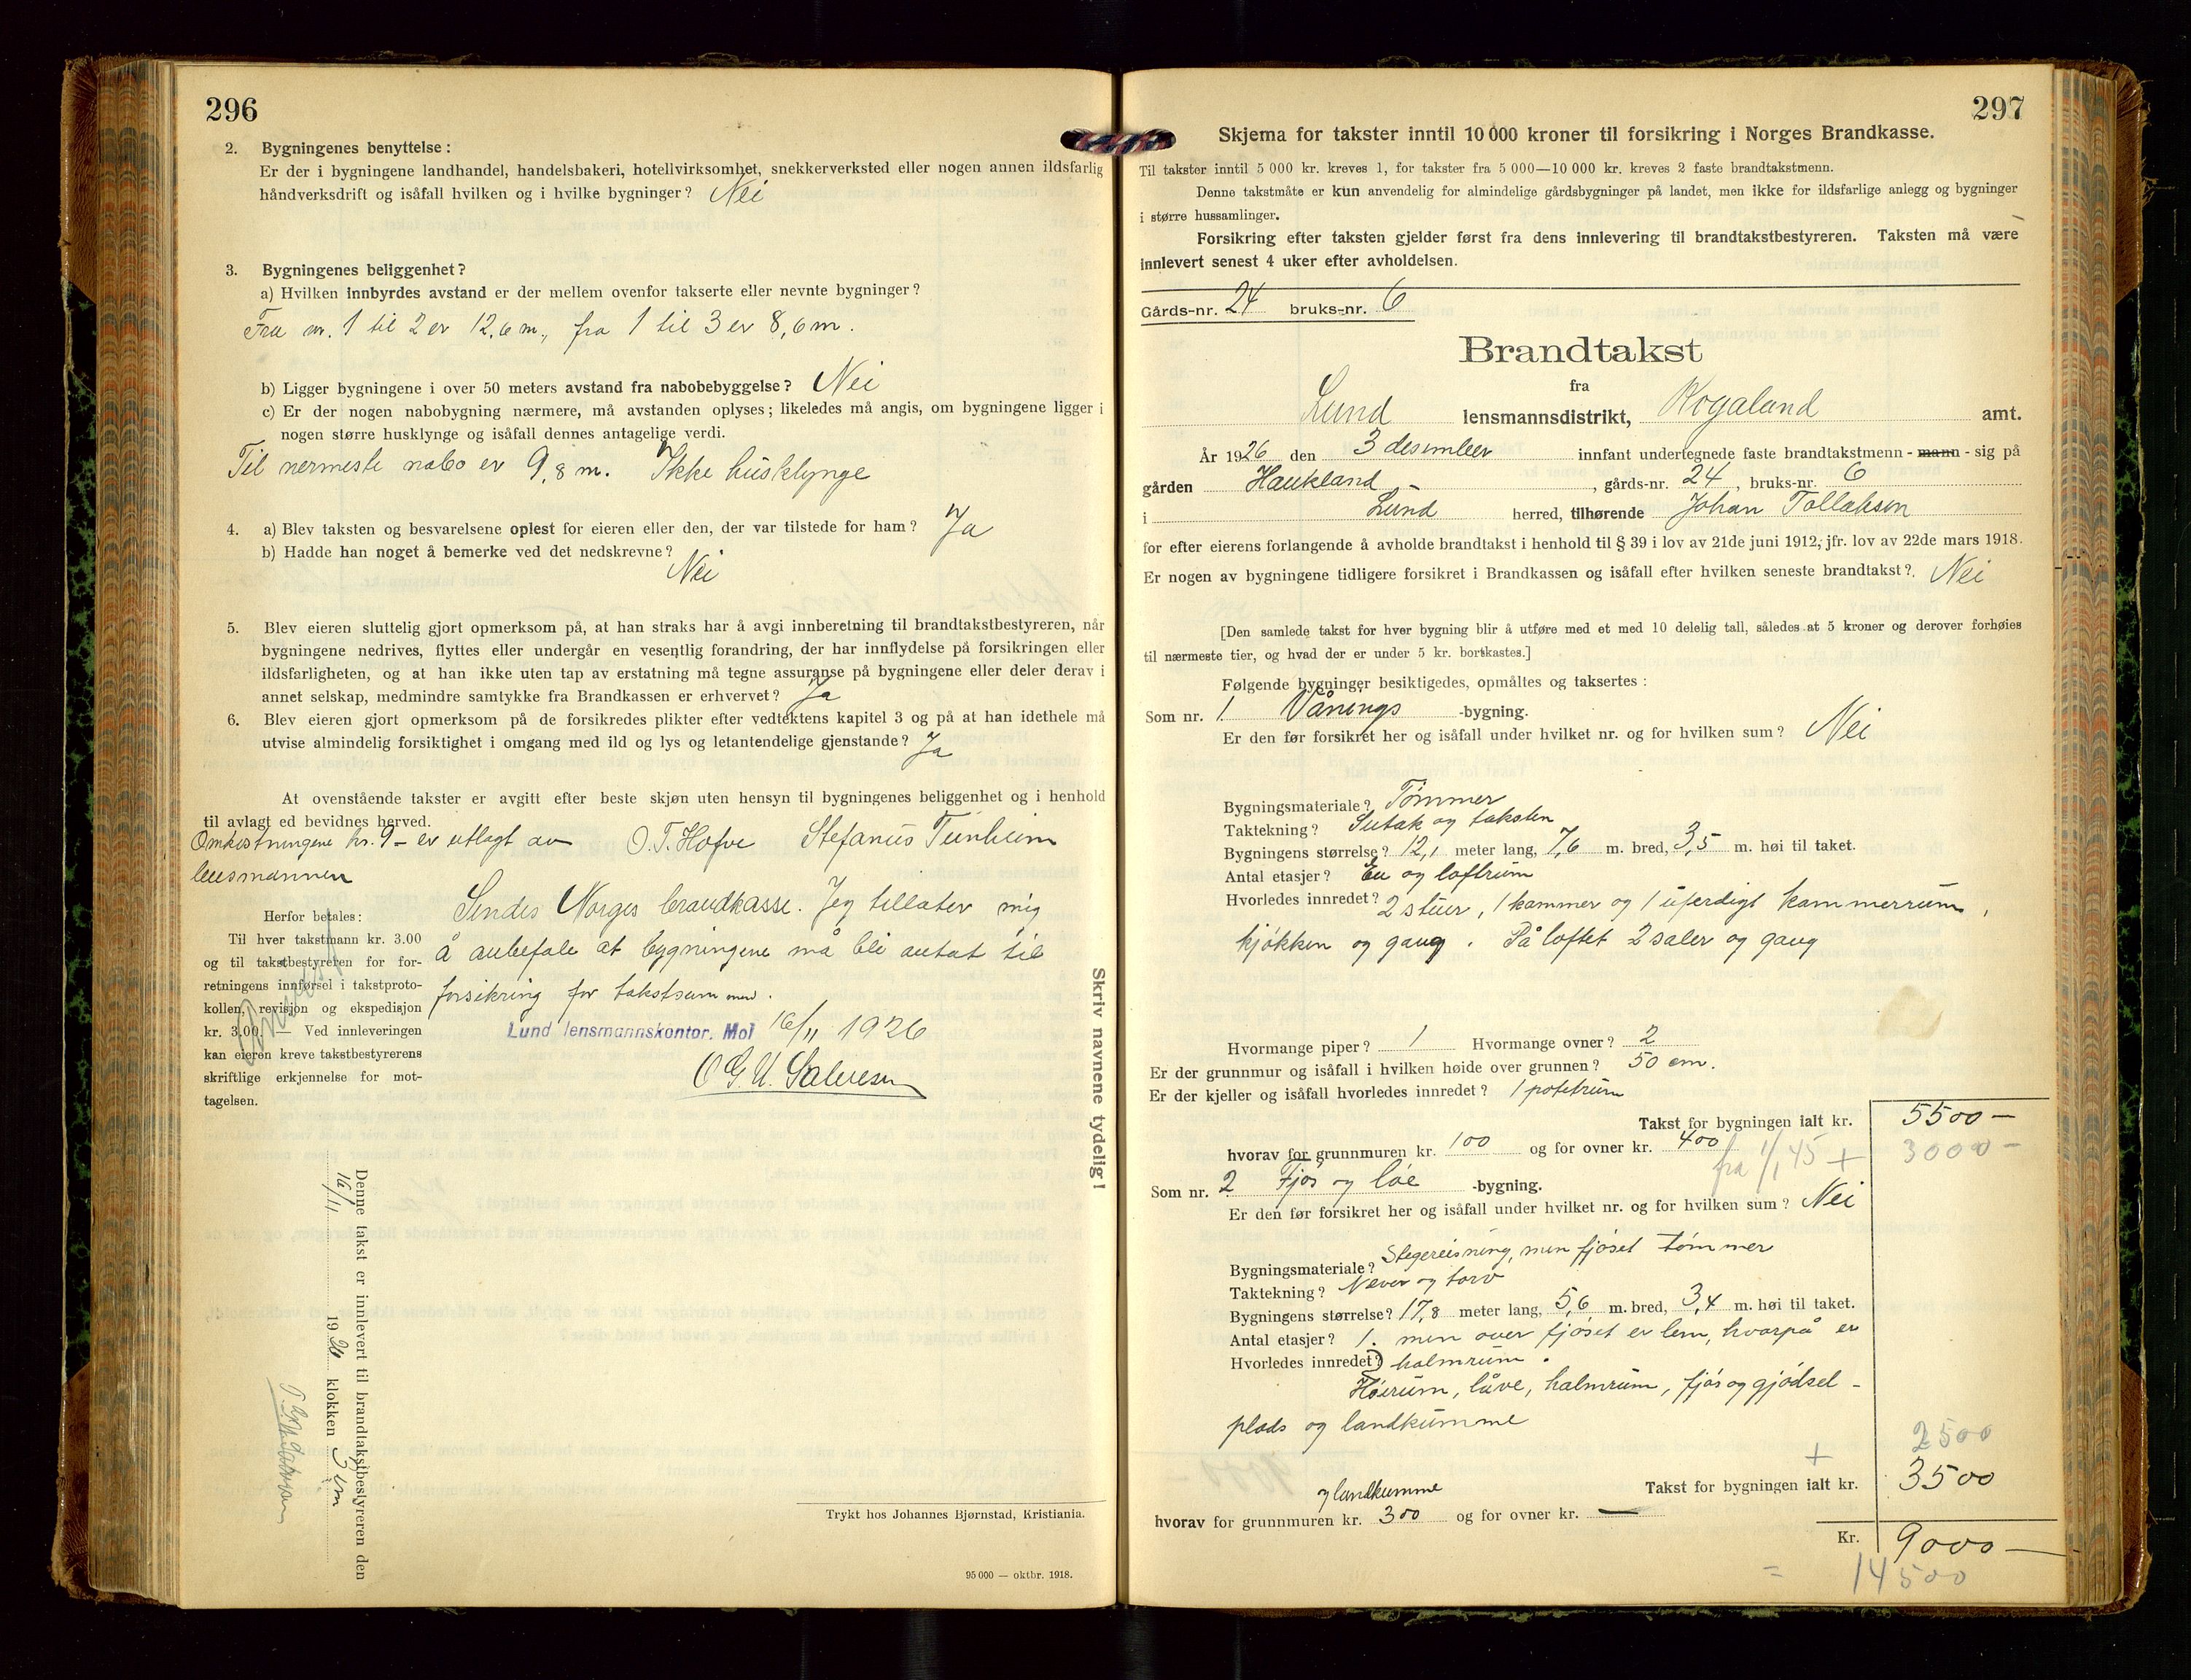 296
2. Bygningenes benyttelse:
Er der i bygningene landhandel, handelsbakeri, hotellvirksomhet, snekkerverksted eller nogen annen ildsfarlig
håndverksdrift og isåfall hvilken og i hvilke bygninger? Nei
3. Bygningenes beliggenhet?
a) Hvilken innbyrdes avstand er der mellem ovenfor takserte eller nevnte bygninger?
Fra nr. 1 til 2 er 12,6 m., fra 1 til 3 er 8,6 m.
b) Ligger bygningene i over 50 meters avstand fra nabobebyggelse? Nei
c) Er der nogen nabobygning nærmere, må avstanden oplyses; likeledes må angis, om bygningene ligger i
nogen større husklynge og isåfall dennes antagelige verdi.
Til nermeste nabo er 9,8 m. Ikke husklynge
4. a) Blev taksten og besvarelsene oplest for eieren eller den, der var tilstede for ham? Ja
b) Hadde han noget å bemerke ved det nedskrevne?
Nei
5. Blev eieren sluttelig gjort opmerksom på, at han straks har å avgi innberetning til brandtakstbestyreren, når
bygningene nedrives, flyttes eller undergår en vesentlig forandring, der har innflydelse på forsikringen eller
ildsfarligheten, og at han ikke uten tap av erstatning må tegne assuranse på bygningene eller deler derav i
annet selskap, medmindre samtykke fra Brandkassen er erhvervet? Ja
6. Blev eieren gjort opmerksom på de forsikredes plikter efter vedtektens kapitel 3 og på at han idethele må
utvise almindelig forsiktighet i omgang med ild og lys og letantendelige gjenstande? Ja
At ovenstående takster er avgitt efter beste skjøn uten hensyn til bygningenes beliggenhet og i henhold
til avlagt ed bevidnes herved.
Omkostningene kr. 9- er utlagt av O. T. Hofve Stefanus Tunheim
lensmannen
Sendes Norges brandkasse. Jeg tillater mig
å anbefale at bygningene må bli antat til
forsikring for takstsummen.
Lund lensmannskontor, Moi 16/11 1926
O G U. Salvesen
Herfor betales:
Til hver takstmann kr. 3.00
og til takstbestyreren for for-
retningens innførsel i takstproto-
kollen, revisjon og ekspedisjon
kr. 3.00. — Ved innleveringen
kan eieren kreve takstbestyrerens
skriftlige erkjennelse for mot-
tagelsen.
Denne takst er innlevert til brandtakstbestyreren den
16/11 1926 klokken
Skriv navnene tydelig!
Trykt hos Johannes Bjørnstad, Kristiania.
95 000 — oktbr. 1918.
297
Skjema for takster inntil 10 000 kroner til forsikring i Norges Brandkasse.
Til takster inntil 5 000 kr. kreves 1, for takster fra 5 000—10 000 kr. kreves 2 faste brandtakstmenn.
Denne takstmåte er kun anvendelig for almindelige gårdsbygninger på landet, men ikke for ildsfarlige anlegg og bygninger
i større hussamlinger.
Forsikring efter taksten gjelder først fra dens innlevering til brandtakstbestyreren. Taksten må være
innlevert senest 4 uker efter avholdelsen.
Gårds-nr. 24 bruks-nr. 6
Brandtakst
fra
Lund lensmannsdistrikt, Rogaland amt.
År 1926 den 3 desember innfant undertegnede faste brandtakstmenn - mann - sig på
gården Haukland, gårds-nr. 24, bruks-nr. 6
i Lund herred, tilhørende Johan Tollaksen
for efter eierens forlangende å avholde brandtakst i henhold til § 39 i lov av 21de juni 1912, jfr. lov av 22de mars 1918.
Er nogen av bygningene tidligere forsikret i Brandkassen og isåfall efter hvilken seneste brandtakst? Nei
[Den samlede takst for hver bygning blir å utføre med et med 10 delelig tall, således at 5 kroner og derover forhøies
til nærmeste tier, og hvad der er under 5 kr. bortkastes.]
Følgende bygninger besiktigedes, opmåltes og taksertes:
Som nr. 1 Vånings -bygning.
Er den før forsikret her og isåfall under hvilket nr. og for hvilken sum? Nei
Bygningsmateriale? Tømmer
Taktekning? Sutak og taksten
Bygningens størrelse? 12,1 meter lang, 7,6 m. bred, 3,5 m. høi til taket.
Antal etasjer? En og loftrum
Hvorledes innredet? 2 stuer, 1 kammer og 1 uferdigt kammerrum,
kjøkken og gang. På loftet 2 saler og gang
Hvormange piper? 1 Hvormange ovner? 2
Er der grunnmur og isåfall i hvilken høide over grunnen? 50 cm.
Er der kjeller og isåfall hvorledes innredet? 1 potetrum
Takst for bygningen ialt kr. 5500 —
hvorav for grunnmuren kr. 100 og for ovner kr. 400 fra 1/1 45 + 3000 —
Som nr. 2 Fjøs og løe -bygning.
Er den før forsikret her og isåfall under hvilket nr. og for hvilken sum? Nei
Bygningsmateriale? Stegereisning, men fjøset tømmer
Taktekning? Never og torv
Bygningens størrelse? 17,8 meter lang, 5,6 m. bred, 3,4 m. høi til taket.
Antal etasjer? 1. men over fjøset er lem, hvorpå er
Hvorledes innredet? halmrum.
Høirum, låve, halmrum, fjøs og gjødsel-
plads og landkumme
+ 2500
Takst for bygningen ialt kr. 3500
og landkumme
hvorav for grunnmuren kr. 300 og for ovner kr. —
Kr. 9000 —
= 14500